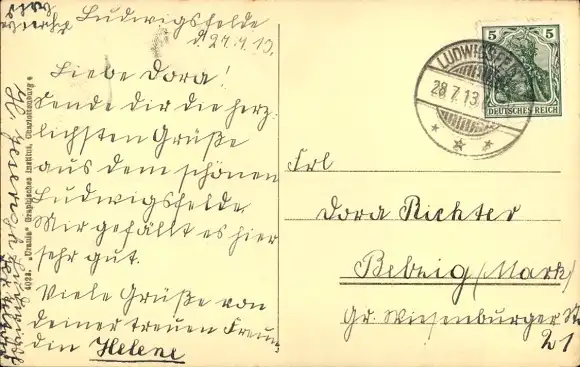 Ludwigsfelde
d. 27.7.13.
Liebe Dora!
Sende dir die herz-
lichsten Grüße
aus dem schönen
Ludwigsfelde.
Mir gefällt es hier
sehr gut.
Viele Grüße von
deiner treuen Freun-
din Helene
4098. „Urania“ Graphisches Institut, Charlottenburg
5 5
DEUTSCHES REICH
LUDWIGSFELDE
28.7.13.
Frl
Dora Richter
Belzig (Mark)
Gr. Wiesenburger Str
21